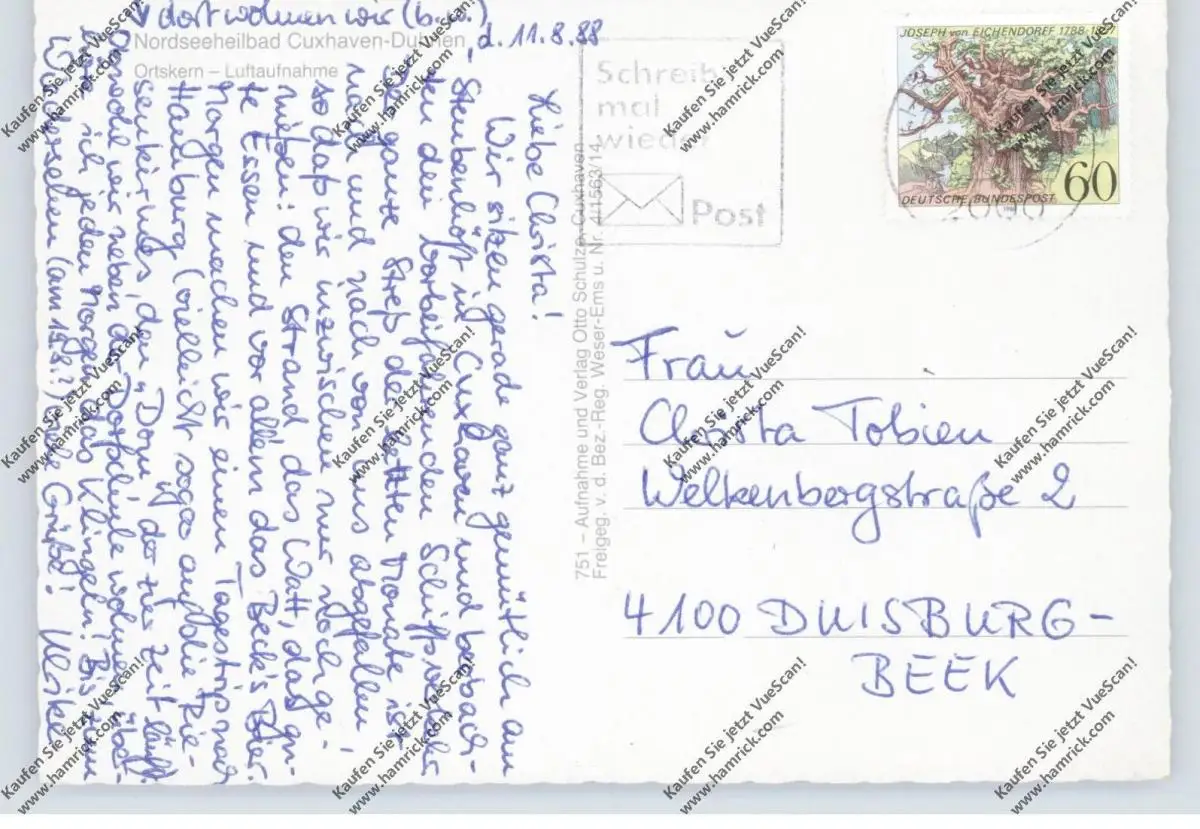 ↓ dort wohnen wir (b.w.)
Nordseeheilbad Cuxhaven-Duhnen
Ortskern – Luftaufnahme
d. 11.8.88
Liebe Christa!
Wir sitzen gerade ganz gemütlich am
Steubenhöft in Cuxhaven und beobach-
ten den vorbeifahrenden Schiffsverkehr
Der ganze Streß der letzten Monate ist
nach und nach von uns abgefallen
so daß wir inzwischen nur noch ge-
nießen: den Strand, das Watt, das gu-
te Essen und vor allem das Beck's Bier.
Morgen machen wir einen Tagestrip nach
Hamburg (vielleicht sogar auf die Rie-
senkirmes, den "Dom", der zur Zeit läuft
Obwohl wir neben der Dorfkirche wohnen, über-
ich jeden Morgen das Klingeln! Bis zum
Wiedersehen (am 15.8.?) liebe Grüße! Ulrike
751 – Aufnahme und Verlag Otto Schulze, Cuxhaven
Freigeg. v. d. Bez.-Reg. Weser-Ems u. Nr. 4/1563/14
Schreib
mal
wieder
Post
JOSEPH von EICHENDORFF 1788-1857
60
DEUTSCHE BUNDESPOST
Frau
Christa Tobien
Welkenbergstraße 2
4100 DUISBURG-
BEEK
Kaufen Sie jetzt VueScan!
www.hamrick.com